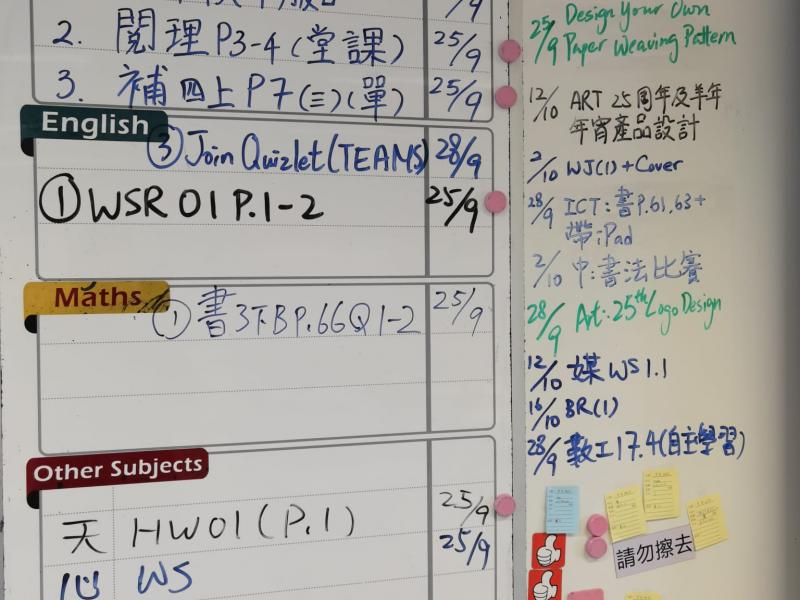 2. 閱理 P3-4 (堂課) 25/9
3. 補 四上 P7 (三)(單) 25/9
English
③ Join Quizlet (TEAMS) 28/9
① WSR 01 P.1-2 25/9
Maths
① 書3下B P.66 Q1-2 25/9
Other Subjects
天 HW01 (P.1) 25/9
心 WS 25/9
25/9 Design Your Own
Paper Weaving Pattern
12/10 ART 25周年及羊年
年宵產品設計
2/10 WJ(1) + Cover
28/9 ICT: 書P.61,63+
帶iPad
2/10 中:書法比賽
28/9 Art: 25th Logo Design
12/10 媒 WS 1.1
16/10 BR(1)
28/9 數工17.4(自主學習)
請勿擦去